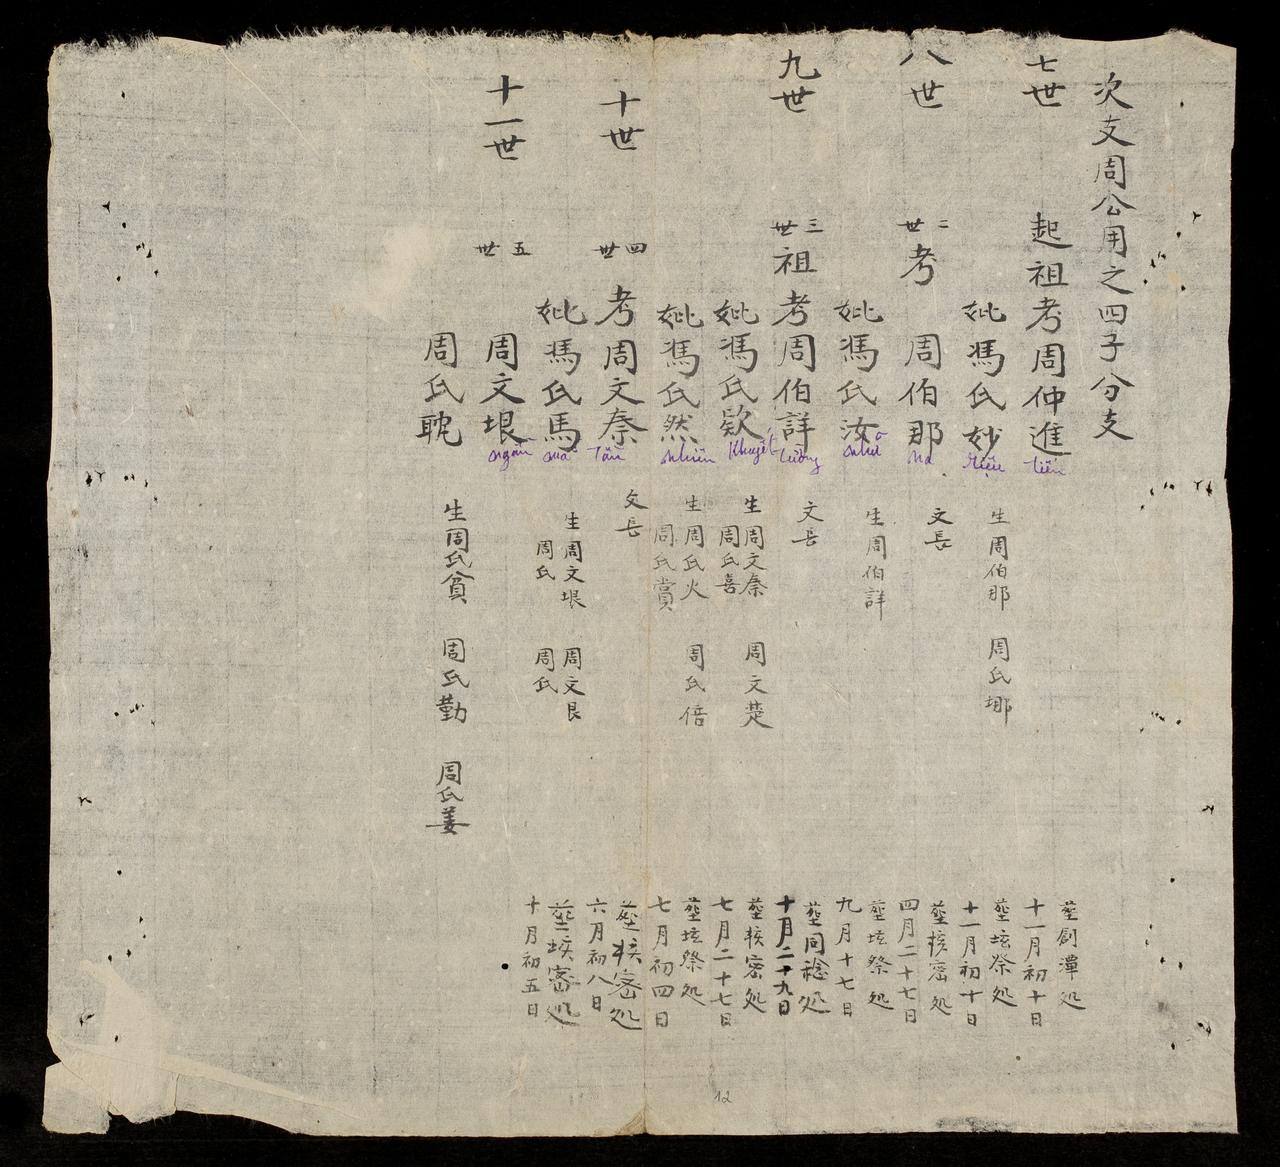 次支周公用之四子分支
七世
起祖考周仲進
tiến
文長
葬創潭処
十一月初十日
妣馮氏妙
diệu
生周伯那 周氏𡊲
葬垓祭処
十一月初十日
八世
二世
考 周伯那
na
文長
葬核密処
四月二十七日
妣馮氏汝
như
生周伯詳
葬垓祭処
九月十七日
九世
三世
祖考周伯詳
tường
文長
葬同稔処
十月二十九日
妣馮氏欵
khuyết
生周文秦 周文楚
周氏喜
葬核密処
七月二十七日
妣馮氏然
nhiên
生周氏火 周氏倍
周氏賞
葬垓祭処
七月初四日
十世
四世
考周文秦
tần
文長
葬核密処
六月初八日
妣馮氏馬
mã
生周文垠 周文艮
周氏 周氏
葬垓密処
十月初五日
十一世
五世
周文垠
ngần
周氏耽
生周氏貧 周氏勤 周氏姜
12